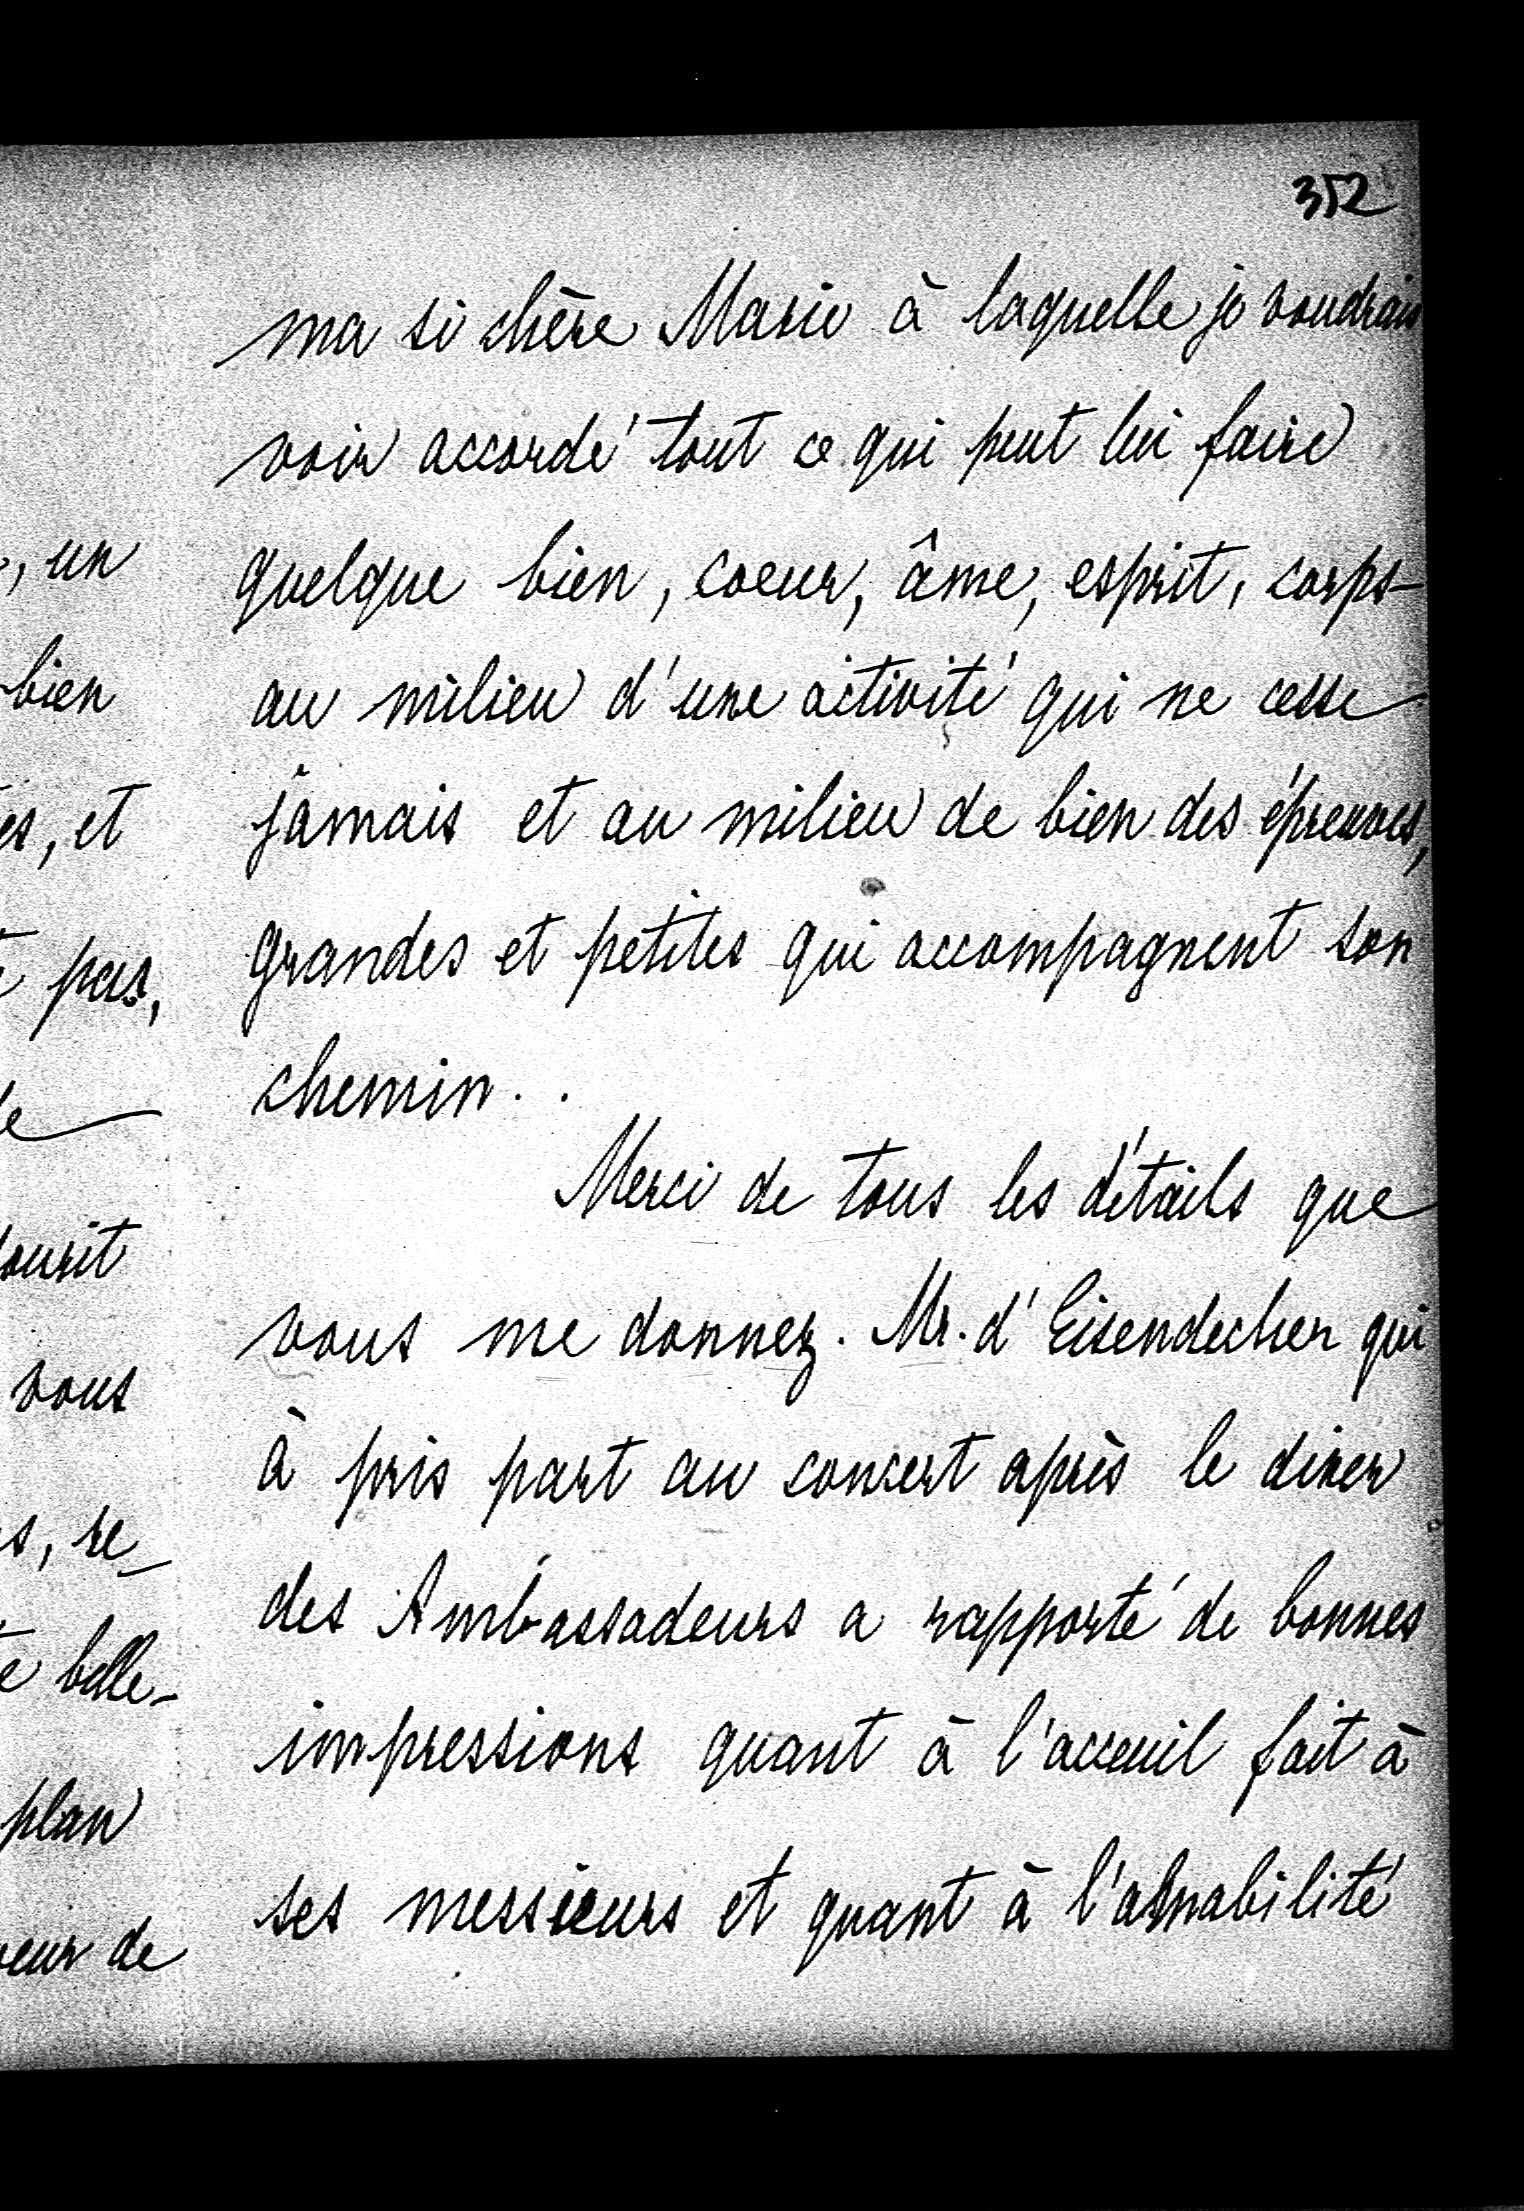 352
ma si chère Marie à laquelle je voudrais
voir accordé tout ce qui peut lui faire
quelque bien, coeur, âme, esprit, corps-
au milieu d'une activité qui ne cesse
jamais et au milieu de bien des épreuves,
grandes et petites qui accompagnent son
chemin..
Merci de tous les détails que
vous me donnez. Mr. d'Eisendecher qui
à pris part au concert après le diner
des Ambassadeurs a rapporté de bonnes
impressions quant à l'acceuil fait à
ses messieurs et quant à l'amabilité
, un
bien
et
pas,
vous
re_
belle-
plan
de